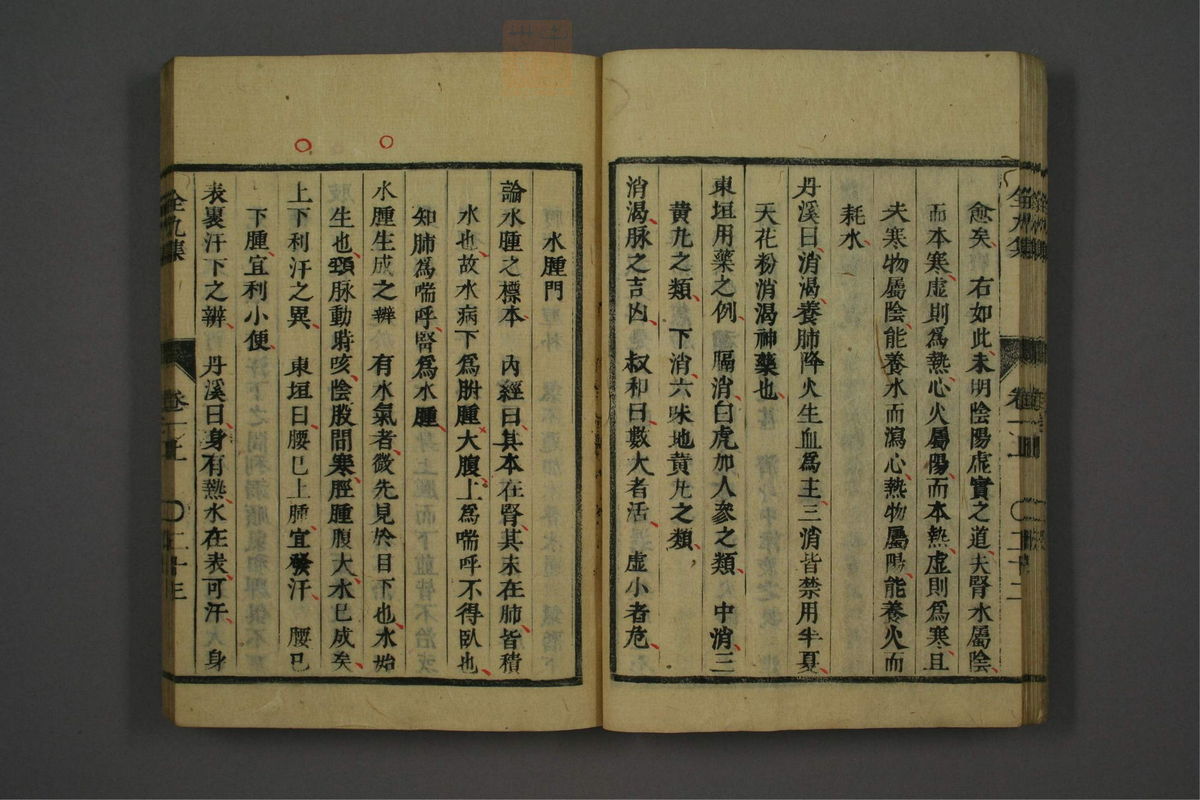 愈矣 右如此未明陰陽虛實之道夫腎水屬陰
而本寒虛則爲熱心火屬陽而本熱虛則爲寒且
夫寒物屬陰能養水而瀉心熱物屬陽能養火而
耗水
丹溪曰消渴養肺降火生血爲主三消皆禁用半夏
天花粉消渴神藥也
東垣用藥之例 膈消白虎加人參之類 中消三
黃丸之類 下消六味地黃丸之類
消渴脉之吉凶 叔和曰數大者活 虛小者危
全九集 卷之二 二十二
水腫門
論水腫之標本 內經曰其本在腎其末在肺皆積
水也故水病下爲胕腫大腹上爲喘呼不得臥也
知肺爲喘呼腎爲水腫
水腫生成之辨 有水氣者微先見於目下也水始
生也頸脉動時咳陰股間寒脛腫腹大水已成矣
上下利汗之異 東垣曰腰已上腫宜發汗 腰已
下腫宜利小便
表裏汗下之辨 丹溪曰身有熱水在表可汗 身
全九集 卷之二 二十三